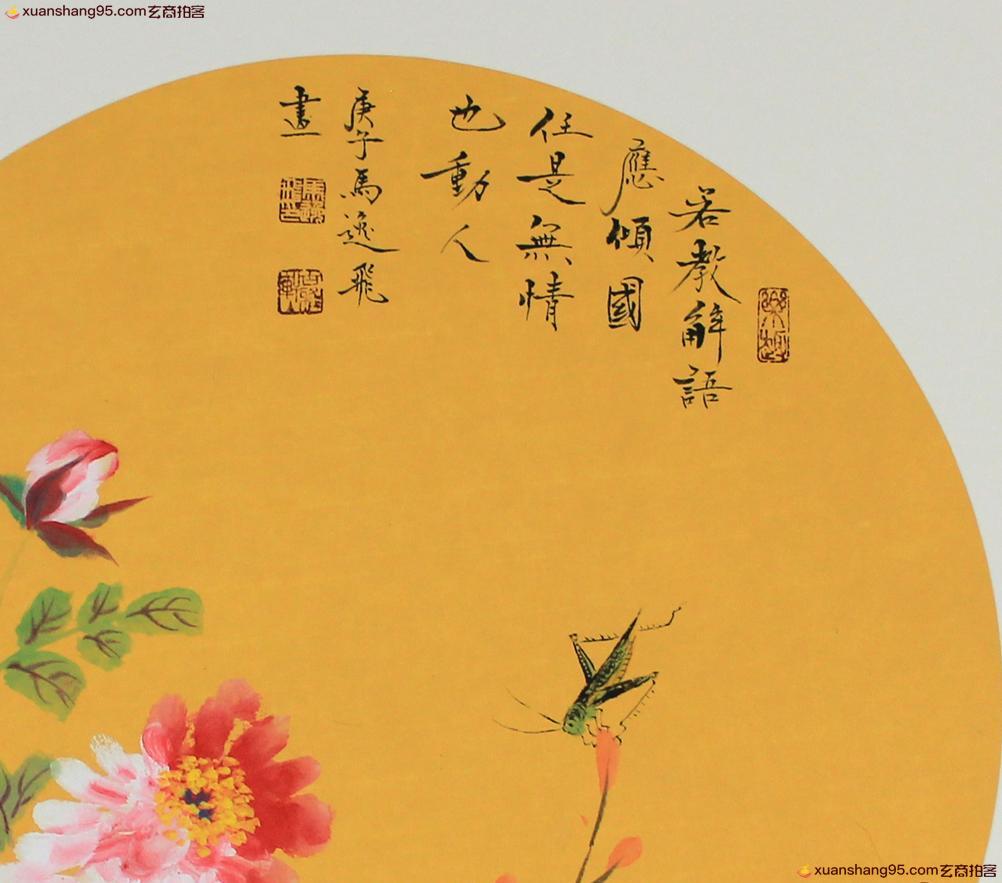 xuanshang95.com玄商拍客
若教解語
應傾國
任是無情
也動人
庚子馬逸飛
畫
xuanshang95.com玄商拍客